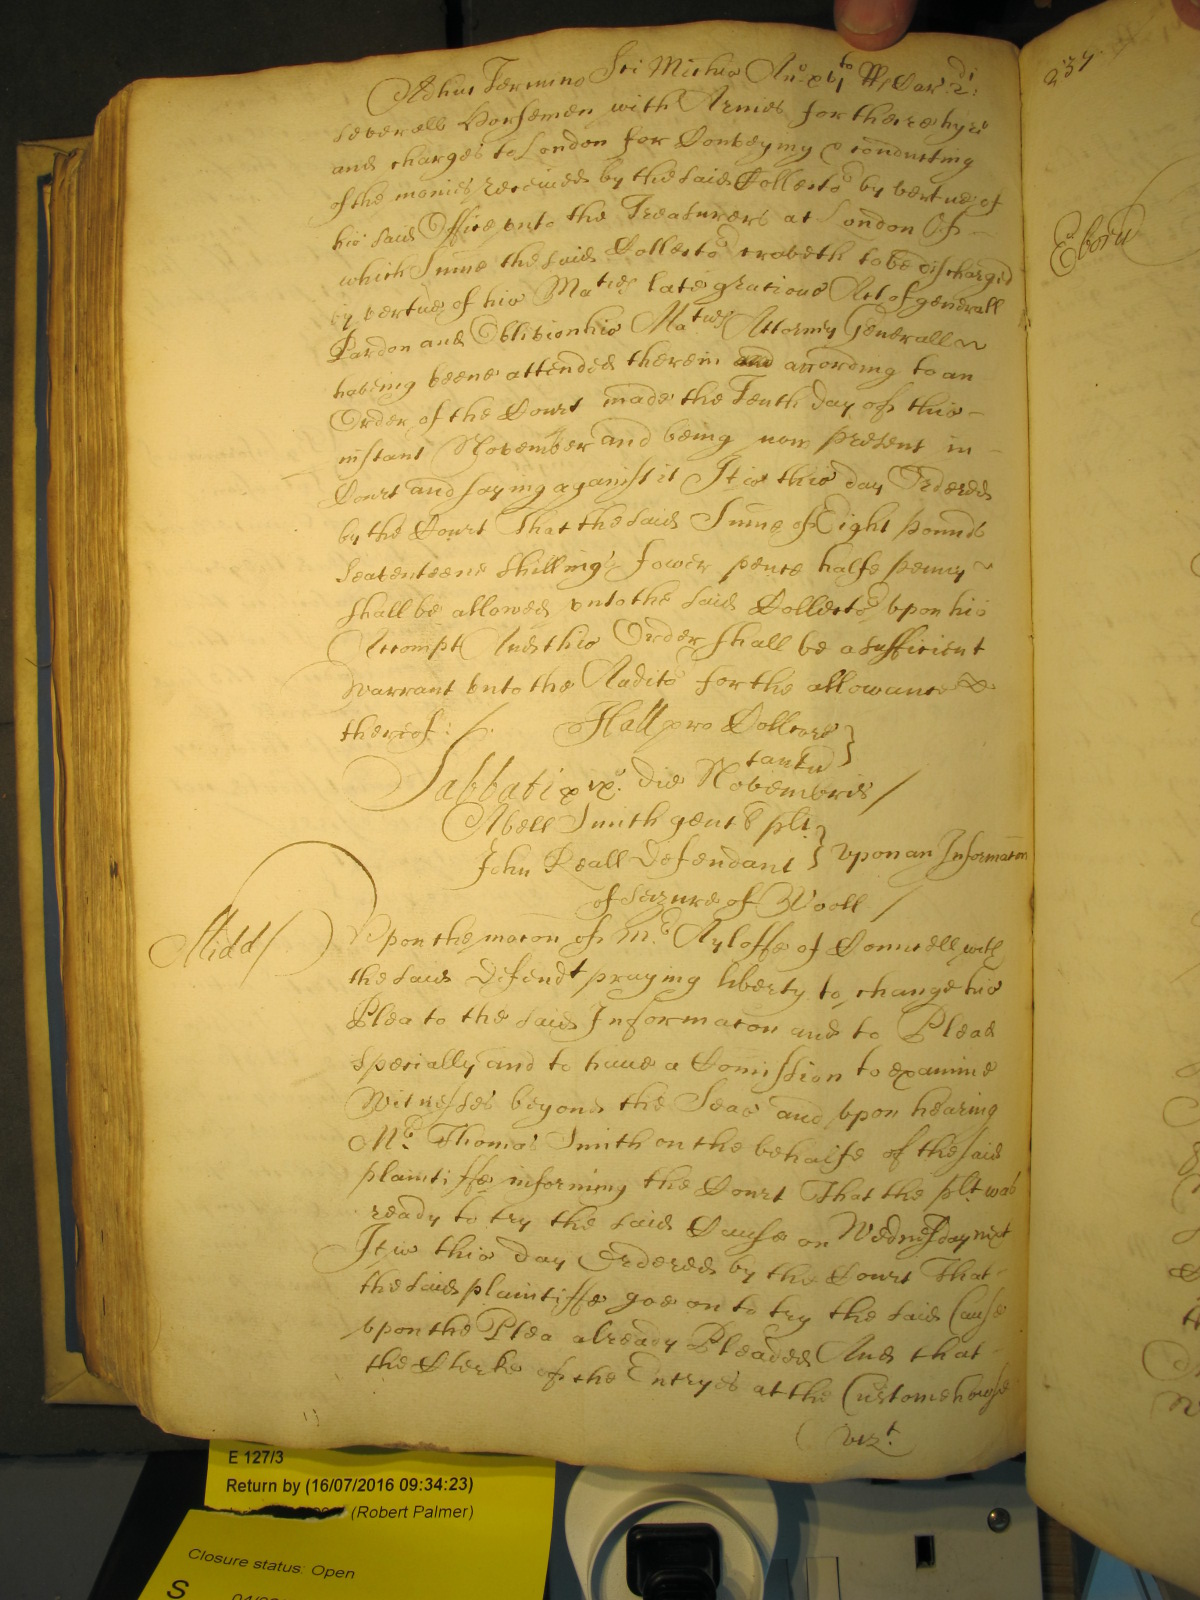 Adhuc Termino Sci Michis Ano xvjto RRs Car 2di:
severall Horsemen with Armes for there hyre
and charges to London for Conveying & conducting
of the monies received by the said Collector by vertue of
his said Office unto the Treasurers at London Of
which Sume the said Collector craveth to be discharged
by vertue of his Maties late gratious Act of generall
Pardon and Oblivion his Maties Attorney Generall
haveing beene attended therein and according to an
Order of the Court made the Tenth day of this
instant November and being now present in
Court and saying against it It is this day Ordered
by the Court That the said Sume of Eight pounds
Seaventeene shillings fower pence halfe penny
shall be allowed unto the said Collector upon his
Accompt And this Order shall be a sufficient
warrant unto the Auditor for the allowance
thereof:
Hall pro Collectore
tantu
Sabbati xix die Novembris
Abell Smith gent plt
John Reall Defendant
Upon an Informacon
of seizure of Wooll
Midd
Upon the macon of Mr Ayloffe of Councell with
the said Defendt praying liberty to change his
Plea to the said Informacon and to Plead
specially and to have a Comission to examine
Witnesses beyond the Seas and upon hearing
Mr Thomas Smith on the behalfe of the said
plaintiffe informing the Court That the plt was
ready to try the said Cause on Wednesday next
It is this day Ordered by the Court That
the said plaintiffe goe on to try the said Cause
upon the Plea already Pleaded And that
the Clerke of the Entryes at the Customehouse
vizt
237
Ebor
E 127/3
Return by (16/07/2016 09:34:23)
(Robert Palmer)
Closure status: Open
S